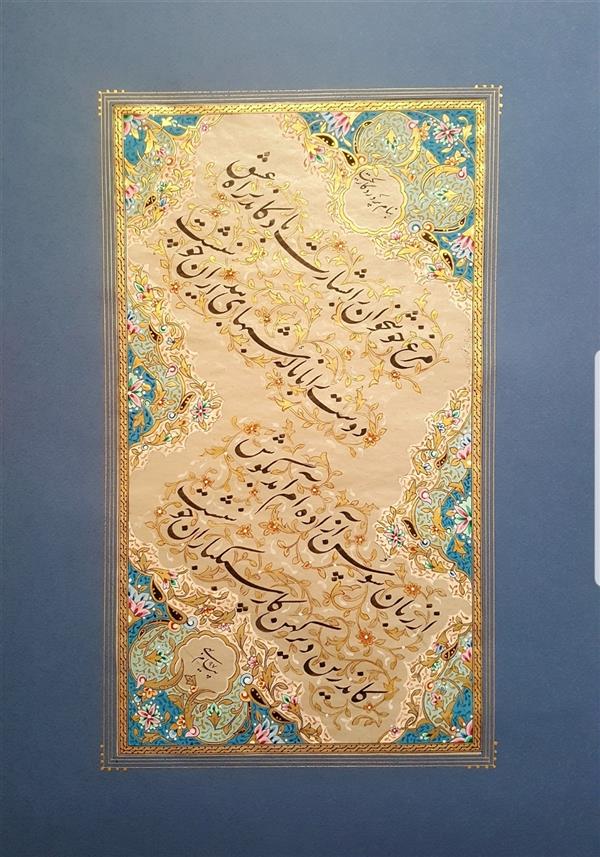 بنام پروردگار
مرغ خوشخوان را بشارت باد کاندر راه عشق
دوست را با ناله شبهای بیداران خوشست
از زبان سوسن آزاده ام آمد بگوش
کاندرین دیر کهن کار سبکباران خوشست